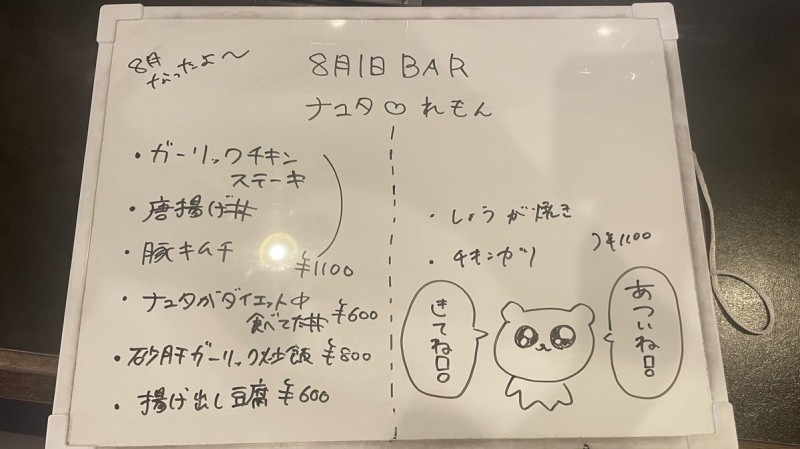 8月
なったよ〜
8月1日 BAR
ナユタ♡れもん
・ガーリックチキン
ステーキ
・唐揚げ丼
・豚キムチ
¥1100
・ナユタがダイエット中
食べてた丼 ¥600
・砂肝ガーリック炒飯 ¥800
・揚げ出し豆腐 ¥600
・しょうが焼き
・チキンガリ
¥1100
きてね
あついね